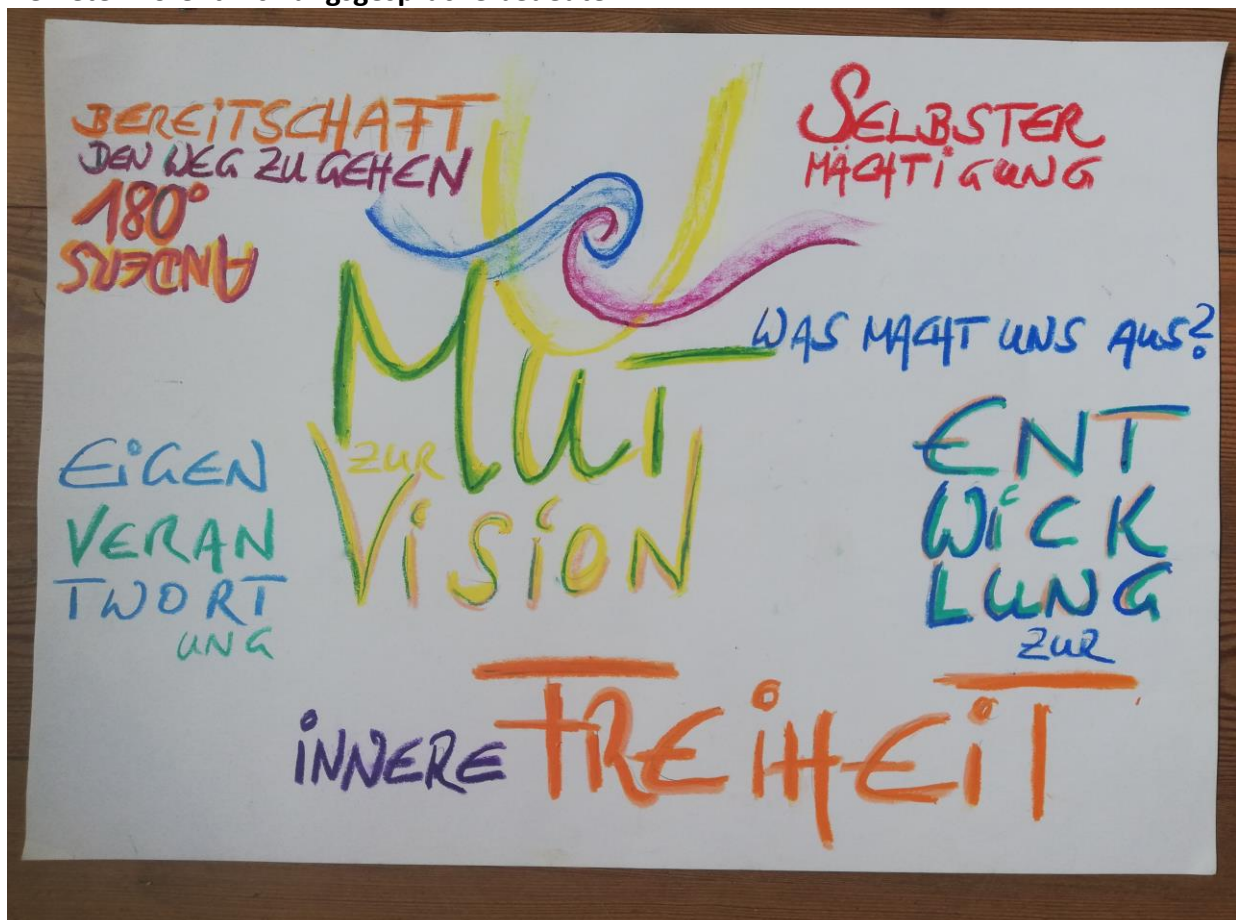 BEREITSCHAFT
DEN WEG ZU GEHEN
180°
ANDERS
SELBSTER
MÄCHTIGUNG
WAS MACHT UNS AUS?
MUT
ZUR
VISION
EIGEN
VERAN
TWORT
UNG
ENT
WICK
LUNG
ZUR
INNERE FREIHEIT